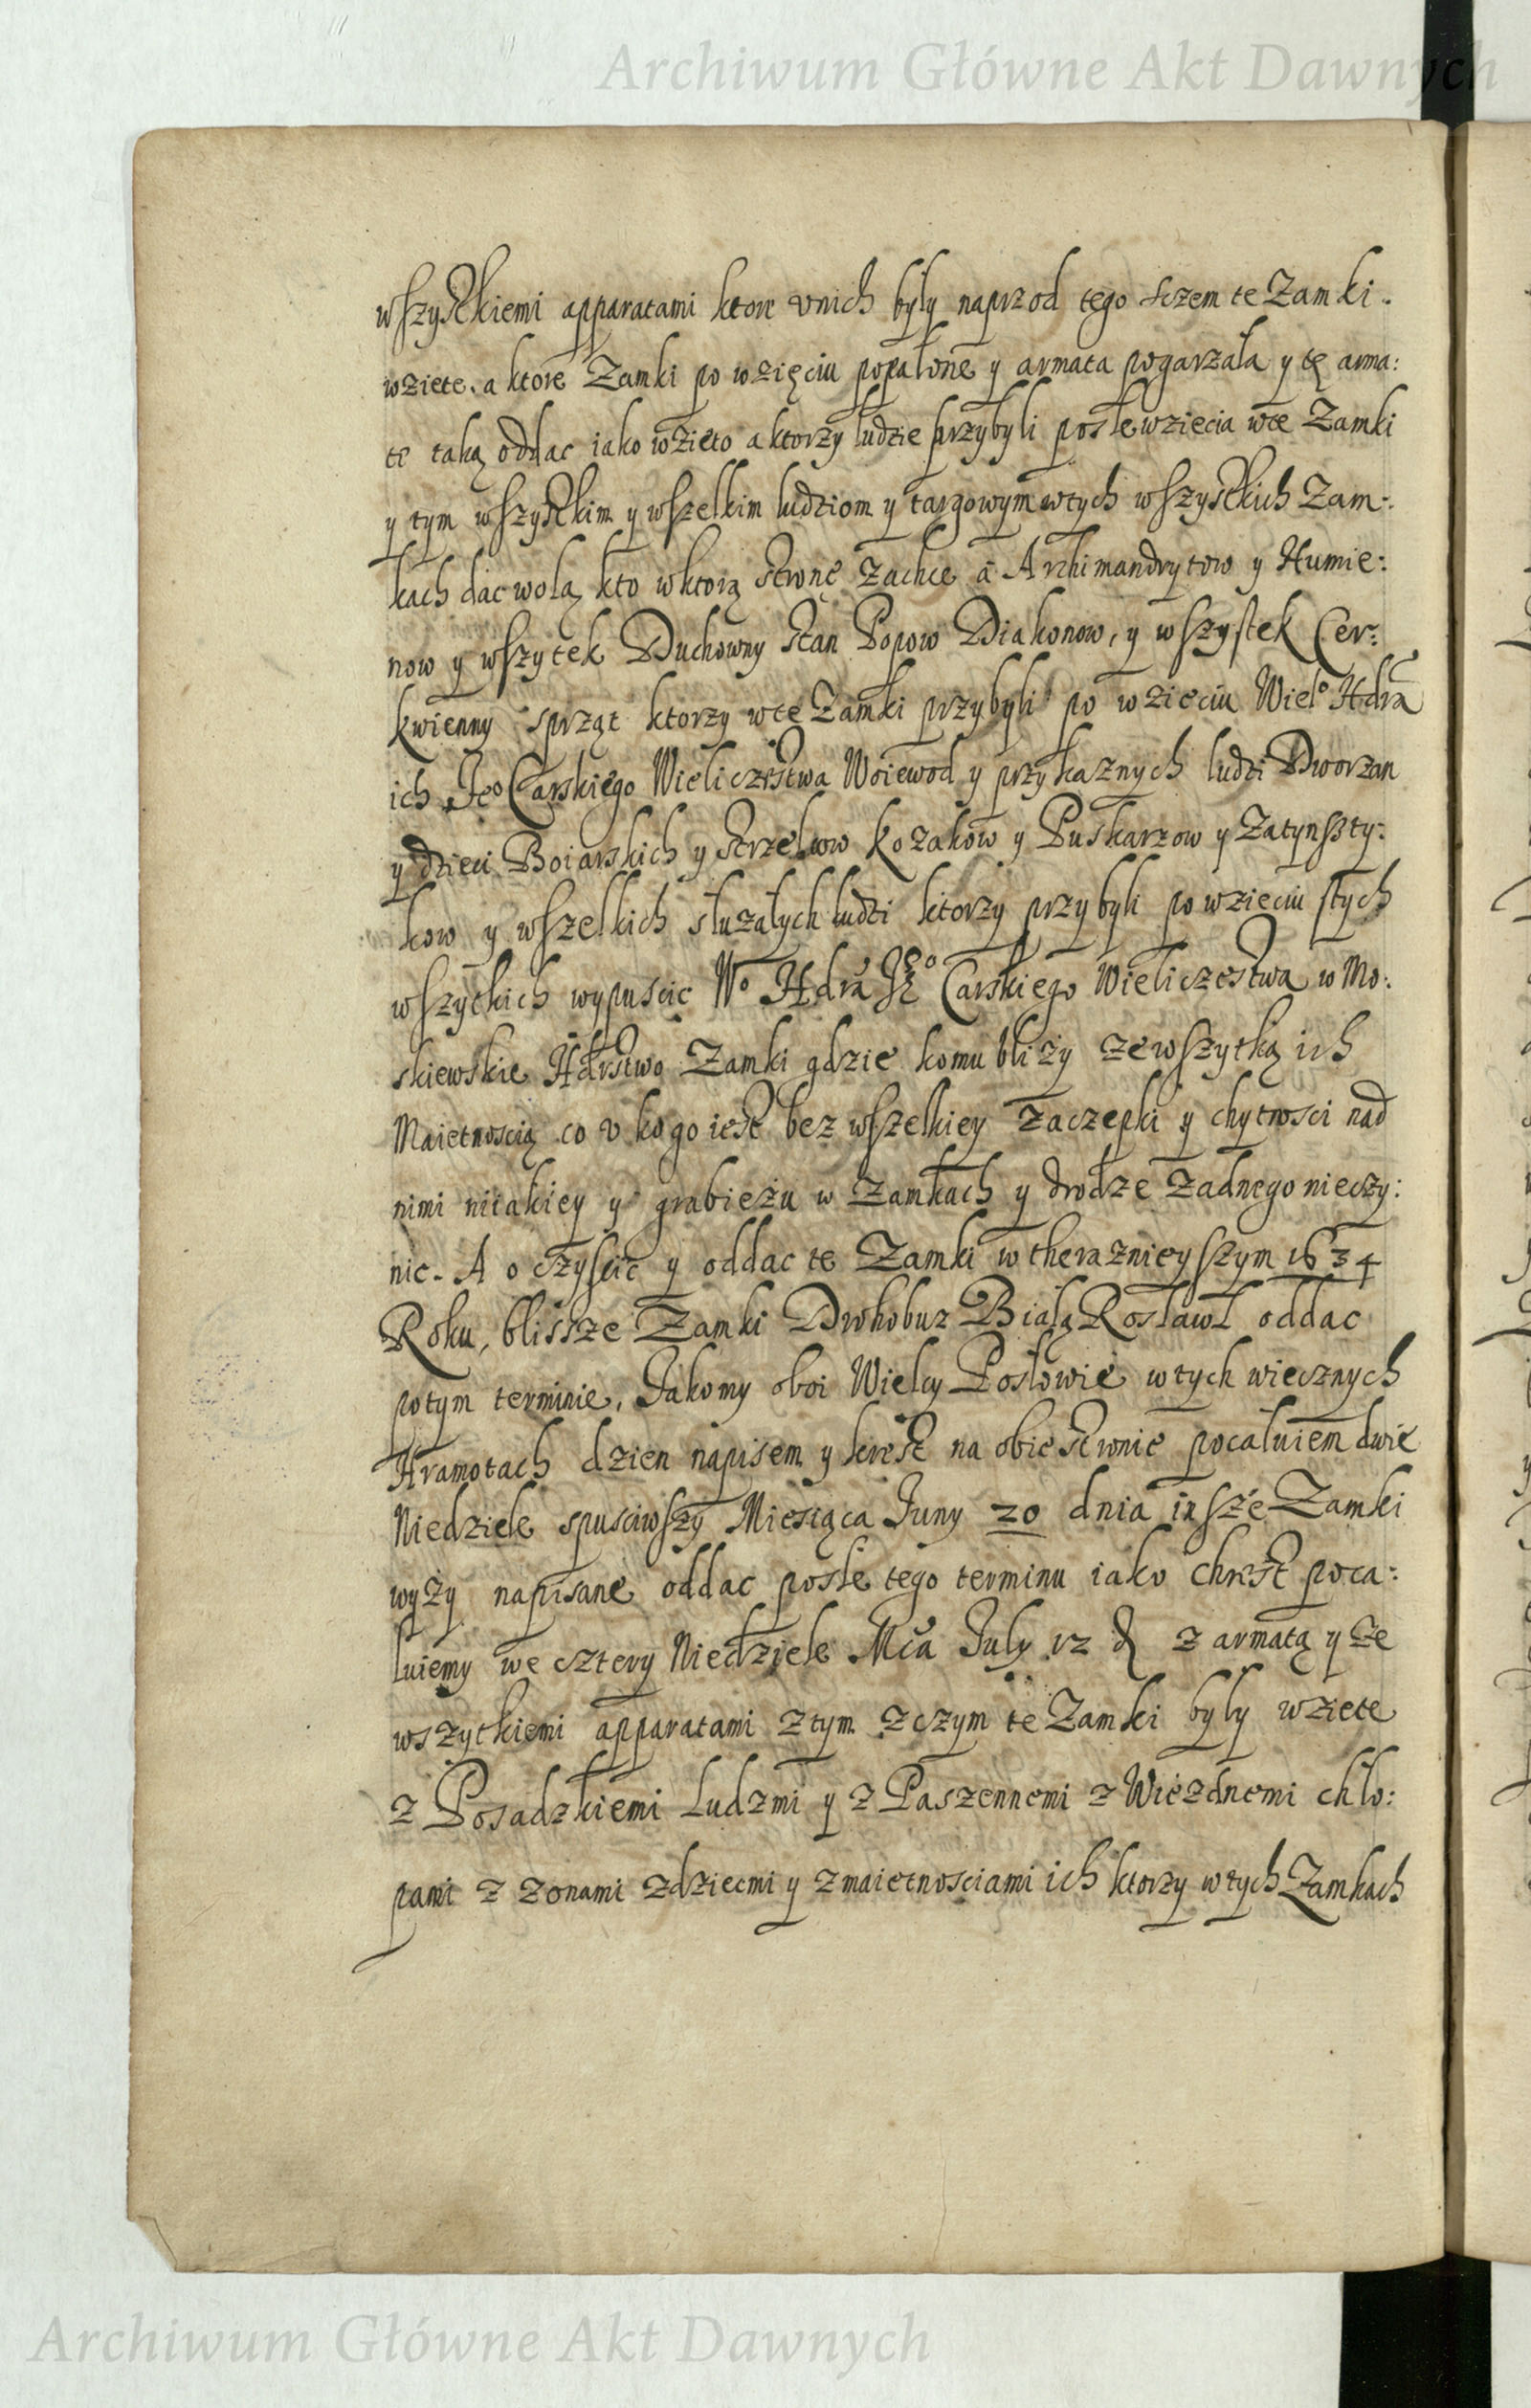 Archiwum Główne Akt Dawnych
wszystkiemi apparatami ktore v nich były naprzod tego sczem te Zamki.
wziete. a ktore Zamki po wzięciu popalone y armata pogarzała y tę arma:
te taką oddac iako wzieto a ktorzy ludzie przybyli posle wziecia w te Zamki
y tym wszystkim y wszelkim ludziom y targowym wtych wszystkich Zam:
kach dac wolą kto wktorą stronę zachce a Archimandrytow y Humie:
now y wszytek Duchowny stan Popow Diakonow, y wszystek Cer:
kwienny sprząt ktorzy w te Zamki przybyli po wzieciu Wielo Hdra
ich Jeo Carskiego Wieliczestwa Woiewod y przykaznych ludzi Dworzan
y dzieci Boiarskich y strzelcow Kozakow y Puskarzow y Zatynszty:
kow y wszelkich służałych ludzi ktorzy przybyli po wzieciu stych
wszytkich wypuscic Wo Hdra Jeo Carskiego Wieliczestwa w Mo:
skiewskie Hdrstwo Zamki gdzie komu bliży ze wszytką ich
Maietnoscią co v kogo iest bez wszelkiey zaczepki y chytrosci nad
nimi niiakiey y grabieżu w Zamkach y drodze żadnego nieczy:
nic. A oczyscic y oddac te Zamki w theraznieyszym 1634
Roku, blissze Zamki Drohobuz Białą Rosławl oddac
potym terminie, Jakomy oboi Wielcy Posłowie wtych wiecznych
Hramotach dzien napisem y krest na obie stronie pocałuiem dwie
Niedziele spusciwszy Miesiąca Juny 20 dnia insze Zamki
wyży napisane oddac posle tego terminu iako chrest poca:
łuiemy we cztery Niedziele Mca July 12 d z armatą y ze
wszytkiemi apparatami z tym z czym te Zamki były wziete
z Posadzkiemi Ludzmi y z Paszennemi z Wiezdnemi chło:
pami z zonami z dziecmi y z maietnosciami ich ktorzy wtych Zamkach
Archiwum Główne Akt Dawnych